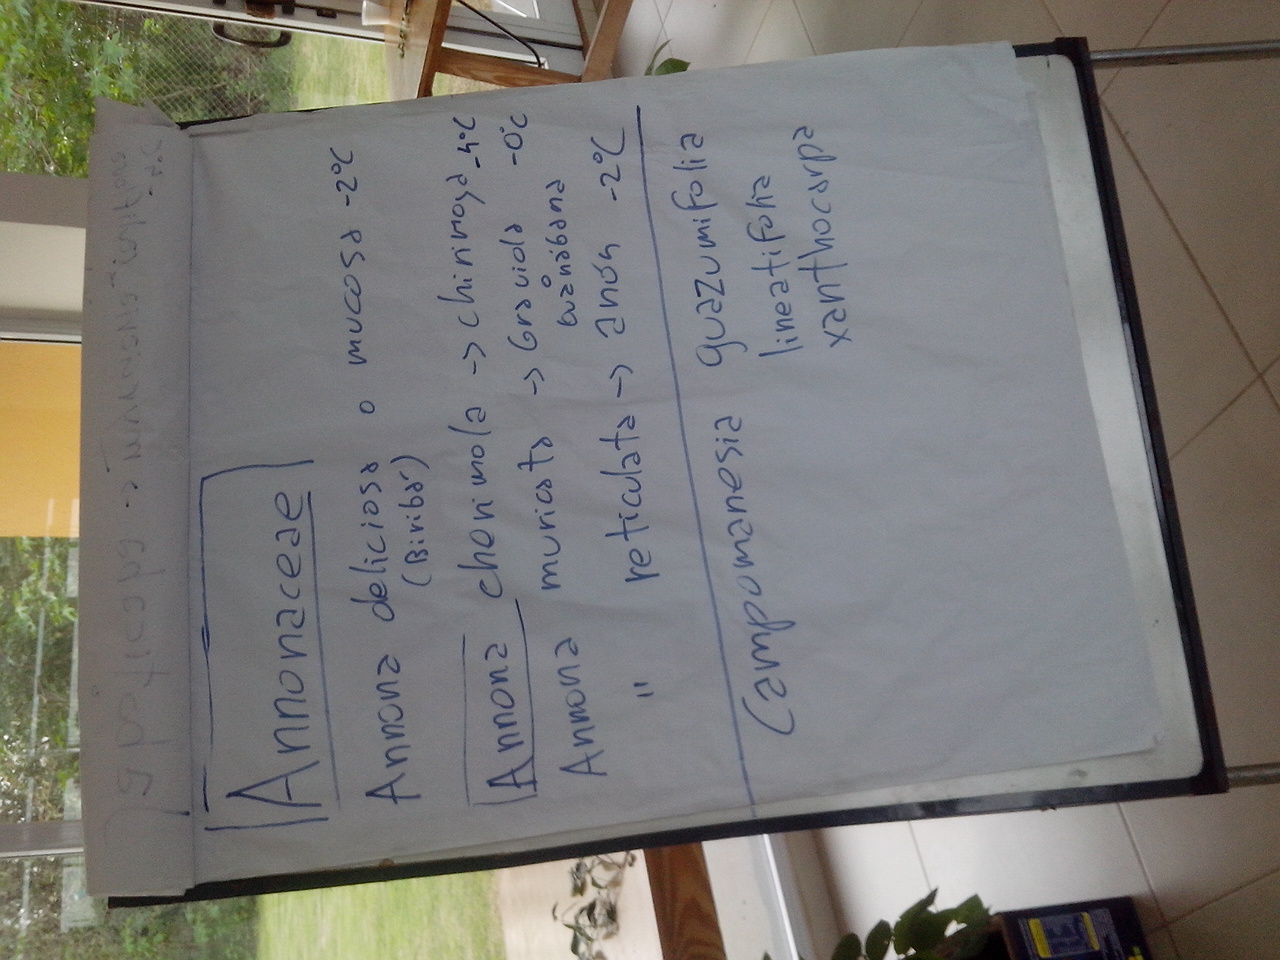 Annonaceae
Annona deliciosa o mucosa -2°C
(Biribar)
Annona cherimola -> chirimoya -4°C
Annona muricata -> Graviola -0°C
Guanábana
" reticulata -> anón -2°C
Campomanesia guazumifolia
lineatifolia
xanthocarpa